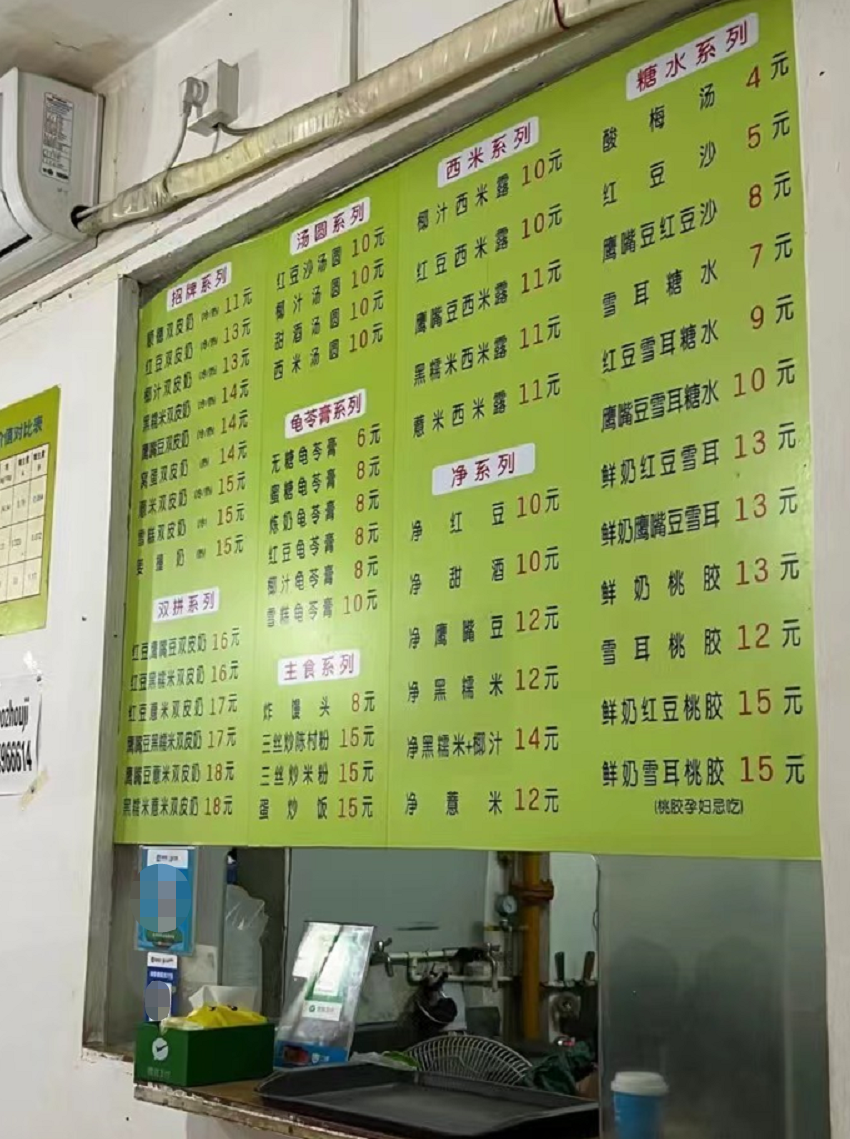 招牌系列
顺德双皮奶 (冷/热) 11元
红豆双皮奶 (冷/热) 13元
椰汁双皮奶 (冷/热) 13元
黑糯米双皮奶 (冷/热) 14元
鹰嘴豆双皮奶 (冷/热) 14元
窝蛋双皮奶 (热) 14元
薏米双皮奶 (冷/热) 15元
雪糕双皮奶 (冷) 15元
姜撞奶 (热) 15元
双拼系列
红豆鹰嘴豆双皮奶 16元
红豆黑糯米双皮奶 16元
红豆薏米双皮奶 17元
鹰嘴豆黑糯米双皮奶 17元
鹰嘴豆薏米双皮奶 18元
黑糯米薏米双皮奶 18元
汤圆系列
红豆沙汤圆 10元
椰汁汤圆 10元
甜酒汤圆 10元
西米汤圆 10元
龟苓膏系列
无糖龟苓膏 6元
蜜糖龟苓膏 8元
炼奶龟苓膏 8元
红豆龟苓膏 8元
椰汁龟苓膏 8元
雪糕龟苓膏 10元
主食系列
炸馒头 8元
三丝炒陈村粉 15元
三丝炒米粉 15元
蛋炒饭 15元
西米系列
椰汁西米露 10元
红豆西米露 10元
鹰嘴豆西米露 11元
黑糯米西米露 11元
薏米西米露 11元
净系列
净红豆 10元
净甜酒 10元
净鹰嘴豆 12元
净黑糯米 12元
净黑糯米+椰汁 14元
净薏米 12元
糖水系列
酸梅汤 4元
红豆沙 5元
鹰嘴豆红豆沙 8元
雪耳糖水 7元
红豆雪耳糖水 9元
鹰嘴豆雪耳糖水 10元
鲜奶红豆雪耳 13元
鲜奶鹰嘴豆雪耳 13元
鲜奶桃胶 13元
雪耳桃胶 12元
鲜奶红豆桃胶 15元
鲜奶雪耳桃胶 15元
(桃胶孕妇忌吃)
价值对比表
ozhouji
966614